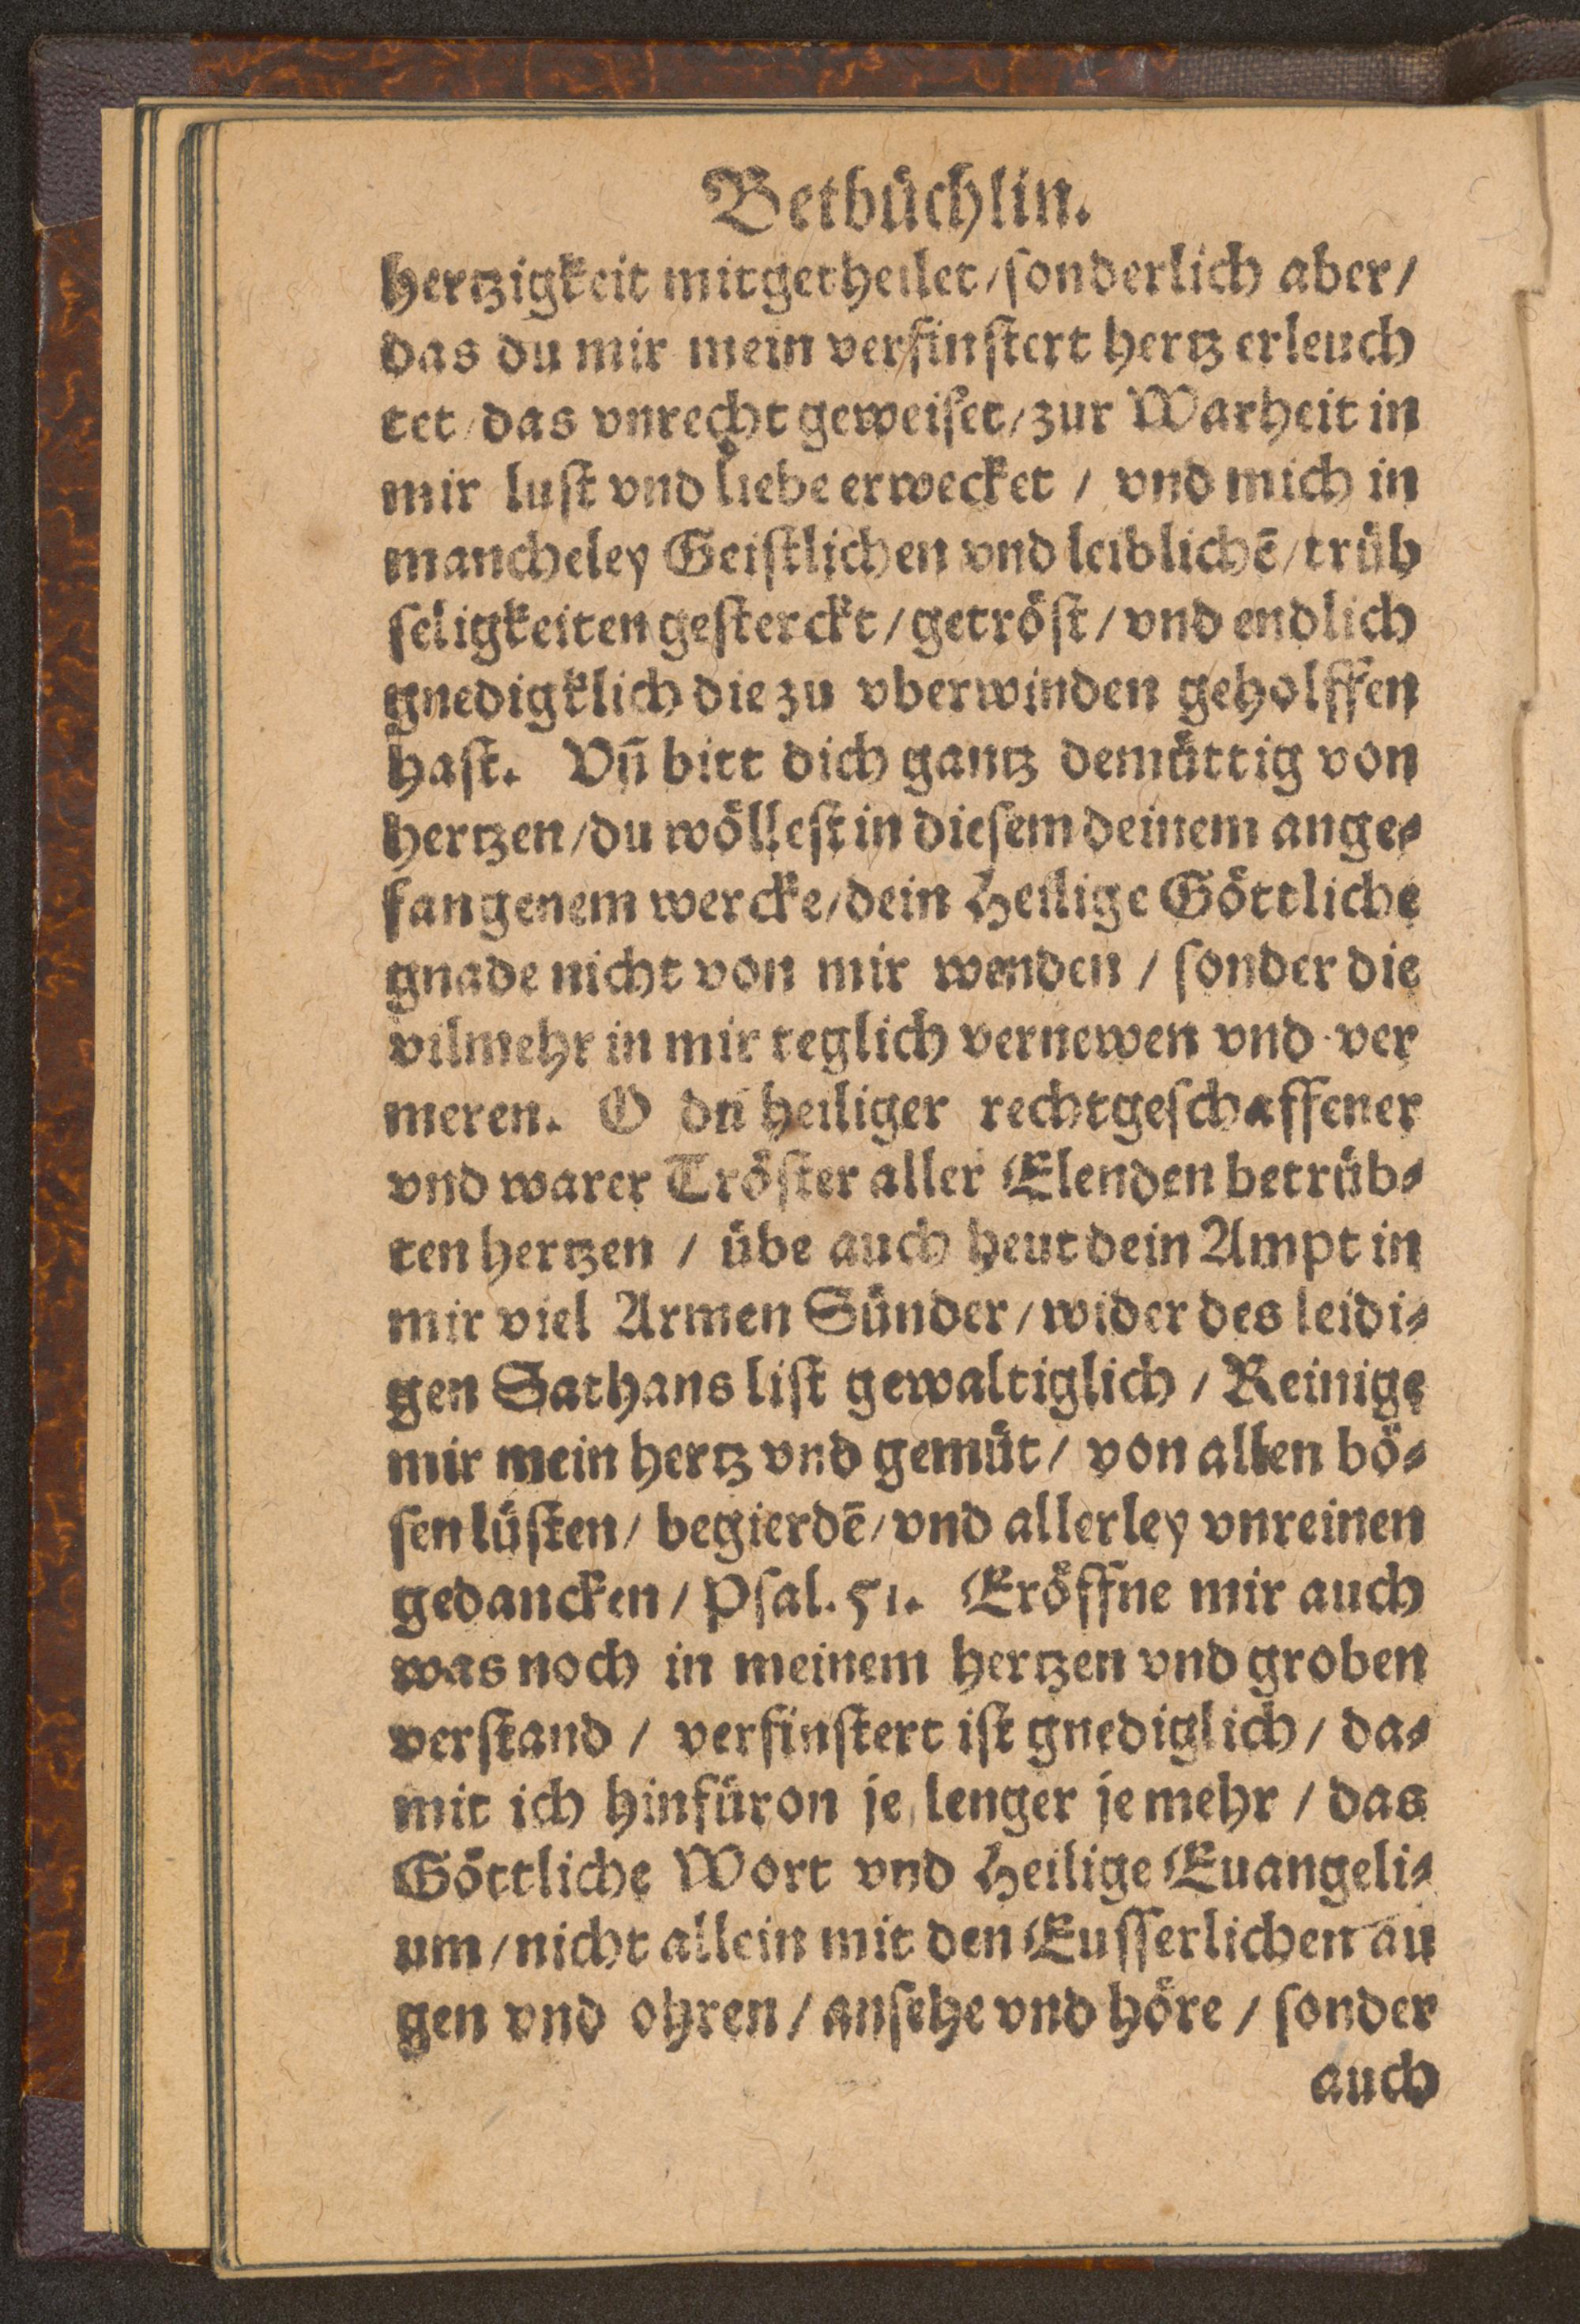 Betbüchlin.
hertzigkeit mitgetheilet / sonderlich aber /
das du mir mein verfinstert hertz erleuch
tet / das vnrecht geweiset / zur Warheit in
mir lust vnd liebe erwecket / vnd mich in
mancheley Geistlichen vnd leiblichē / trüb
seligkeiten gesterckt / getröst / vnd endlich
gnedigklich die zu vberwinden geholffen
hast. Vn̄ bitt dich gantz demüttig von
hertzen / du wöllest in diesem deinem ange⸗
fangenem wercke / dein Heilige Göttliche
gnade nicht von mir wenden / sonder die
vilmehr in mir teglich vernewen vnd ver
meren. O du heiliger rechtgeschaffener
vnd warer Tröster aller Elenden betrüb⸗
ten hertzen / übe auch heut dein Ampt in
mir viel Armen Sünder / wider des leidi⸗
gen Sathans list gewaltiglich / Reinige
mir mein hertz vnd gemüt / von allen bö⸗
sen lüsten / begierdē / vnd allerley vnreinen
gedancken / Psal. 51. Eröffne mir auch
was noch in meinem hertzen vnd groben
verstand / verfinstert ist gnediglich / da⸗
mit ich hinfüron je lenger je mehr / das
Göttliche Wort vnd Heilige Euangeli⸗
um / nicht allein mit den Eusserlichen au
gen vnd ohren / ansehe vnd höre / sonder
auch